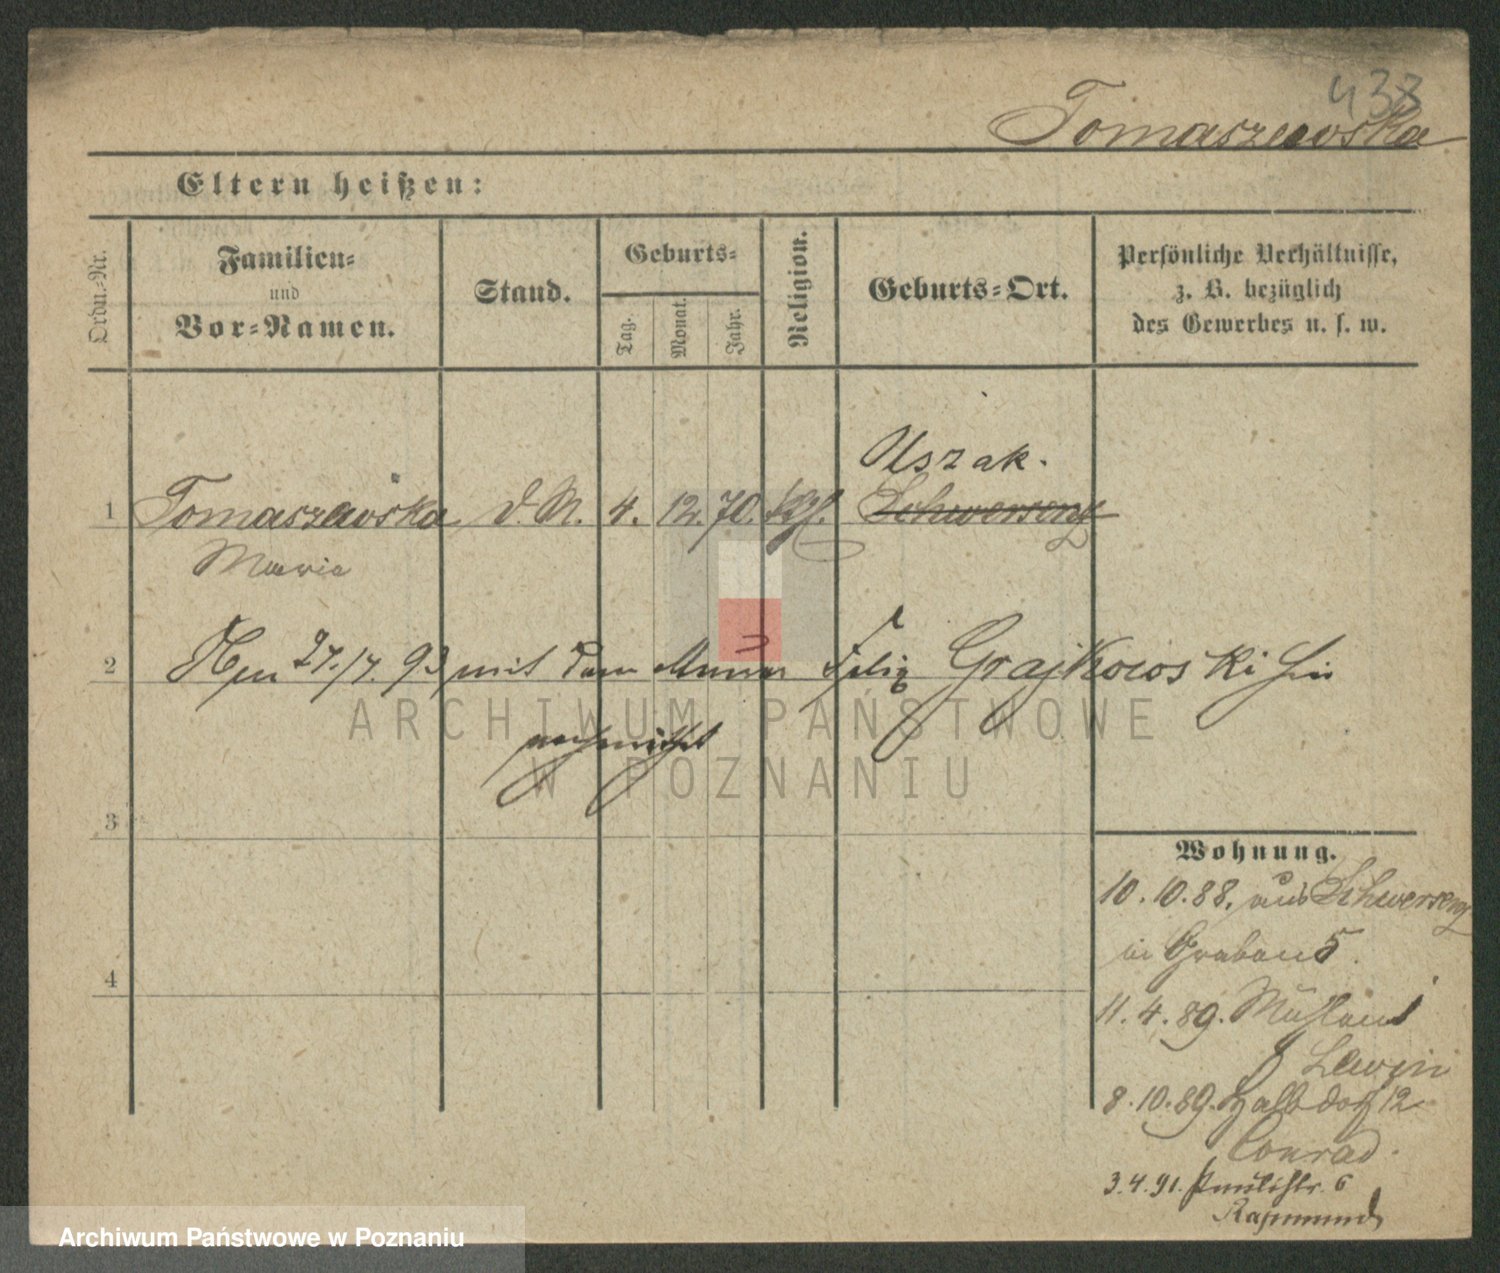 438
Tomaszewska
Eltern heißen:
Ordn.-Nr.
Familien-
und
Vor-Namen.
Stand.
Geburts-
Tag.
Monat.
Jahr.
Religion.
Geburts-Ort.
Persönliche Verhältnisse,
z. B. bezüglich
des Gewerbes u. s. w.
Uszak.
1 Tomaszewska d. M. 4. 12. 70. Kth. Schwersenz
Maria
2 27./7. 93 mit dem Maurer Felix Grajkowski hier
verheirathet
ARCHIWUM PAŃSTWOWE
W POZNANIU
3
Wohnung.
10. 10. 88. aus Schwersenz
in Graben 5.
4
11. 4. 89. Mühlenst
Lewin
8. 10. 89. Halbdorf 12
Conrad.
3. 4. 91. Paulistr. 6
Archiwum Państwowe w Poznaniu